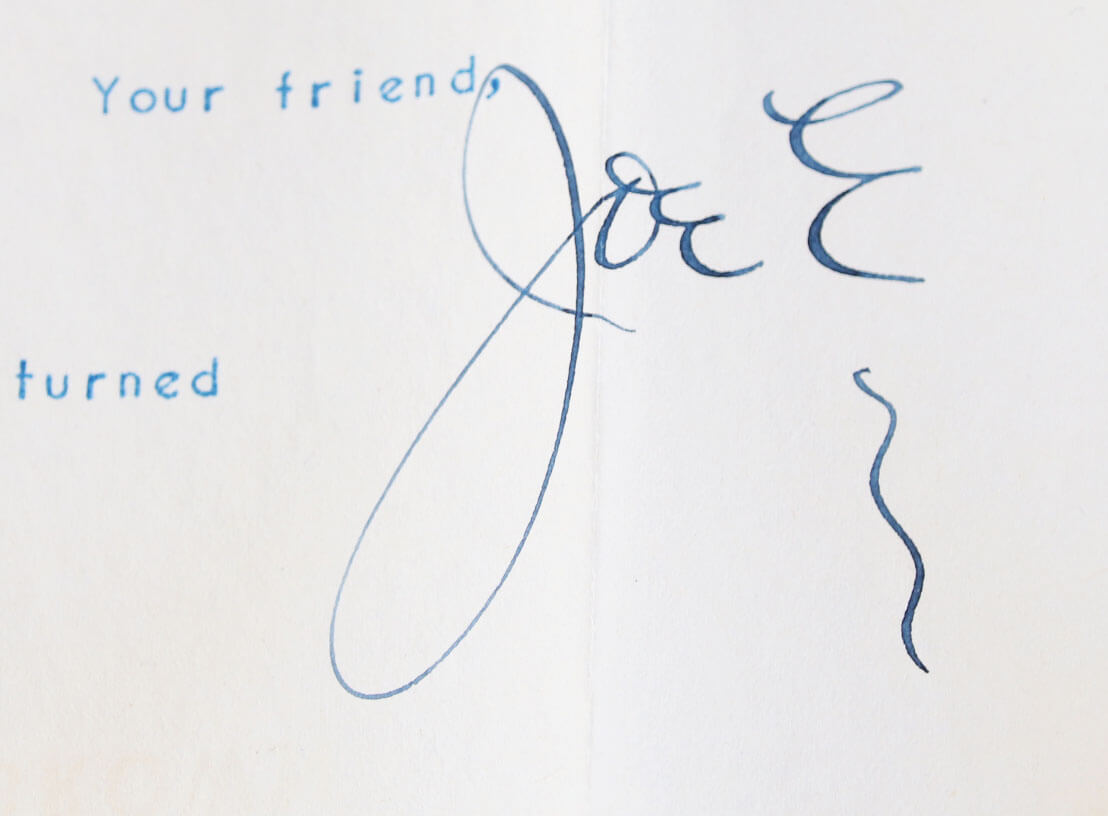 Your friend,
Joe E
turned